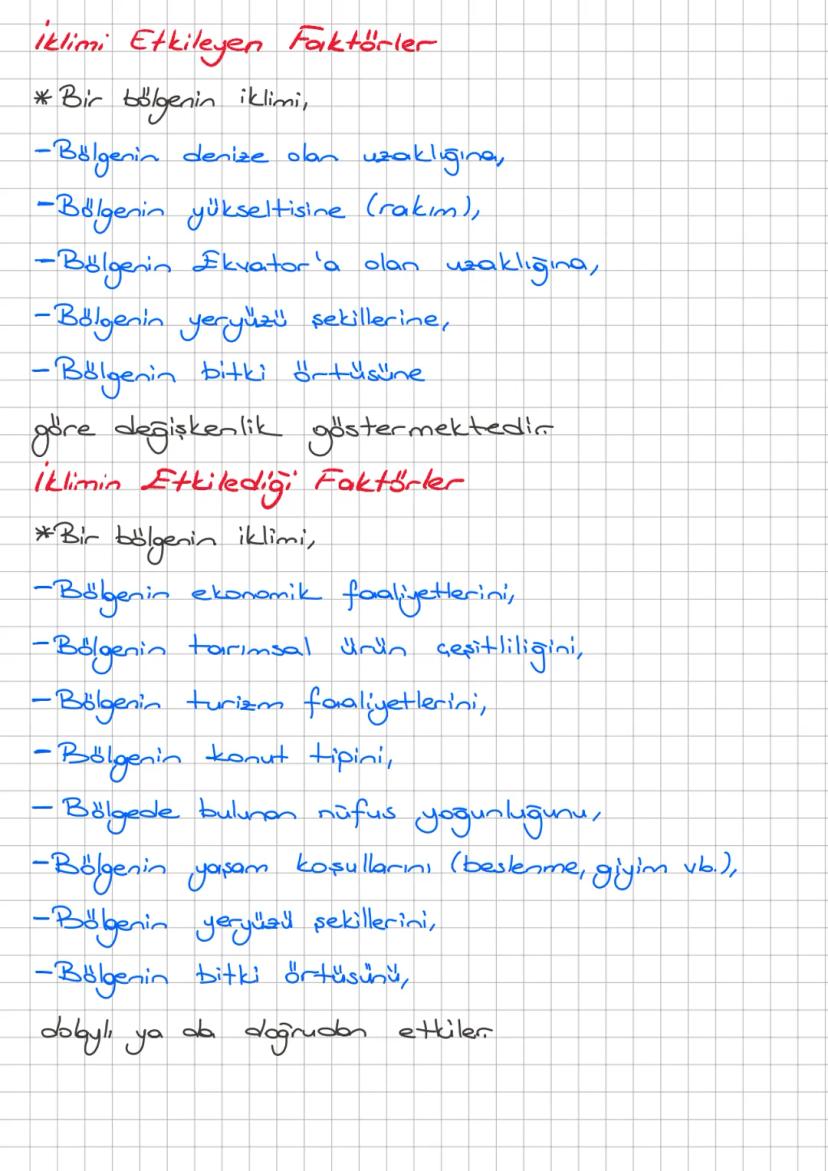 İklimi Etkileyen Faktörler
* Bir bölgenin iklimi,
- Bölgenin denize olan uzaklığına,
- Bölgenin yükseltisine (rakım),
- Bölgenin Ekvator'a olan uzaklığına,
- Bölgenin yeryüzü şekillerine,
- Bölgenin bitki örtüsüne
göre değişkenlik göstermektedir.
İklimin Etkilediği Faktörler
* Bir bölgenin iklimi,
- Bölgenin ekonomik faaliyetlerini,
- Bölgenin tarımsal ürün çeşitliliğini,
- Bölgenin turizm faaliyetlerini,
- Bölgenin konut tipini,
- Bölgede bulunan nüfus yoğunluğunu,
- Bölgenin yaşam koşullarını (beslenme, giyim vb.),
- Bölgenin yeryüzü şekillerini,
- Bölgenin bitki örtüsünü,
dolaylı ya da doğrudan etkiler.